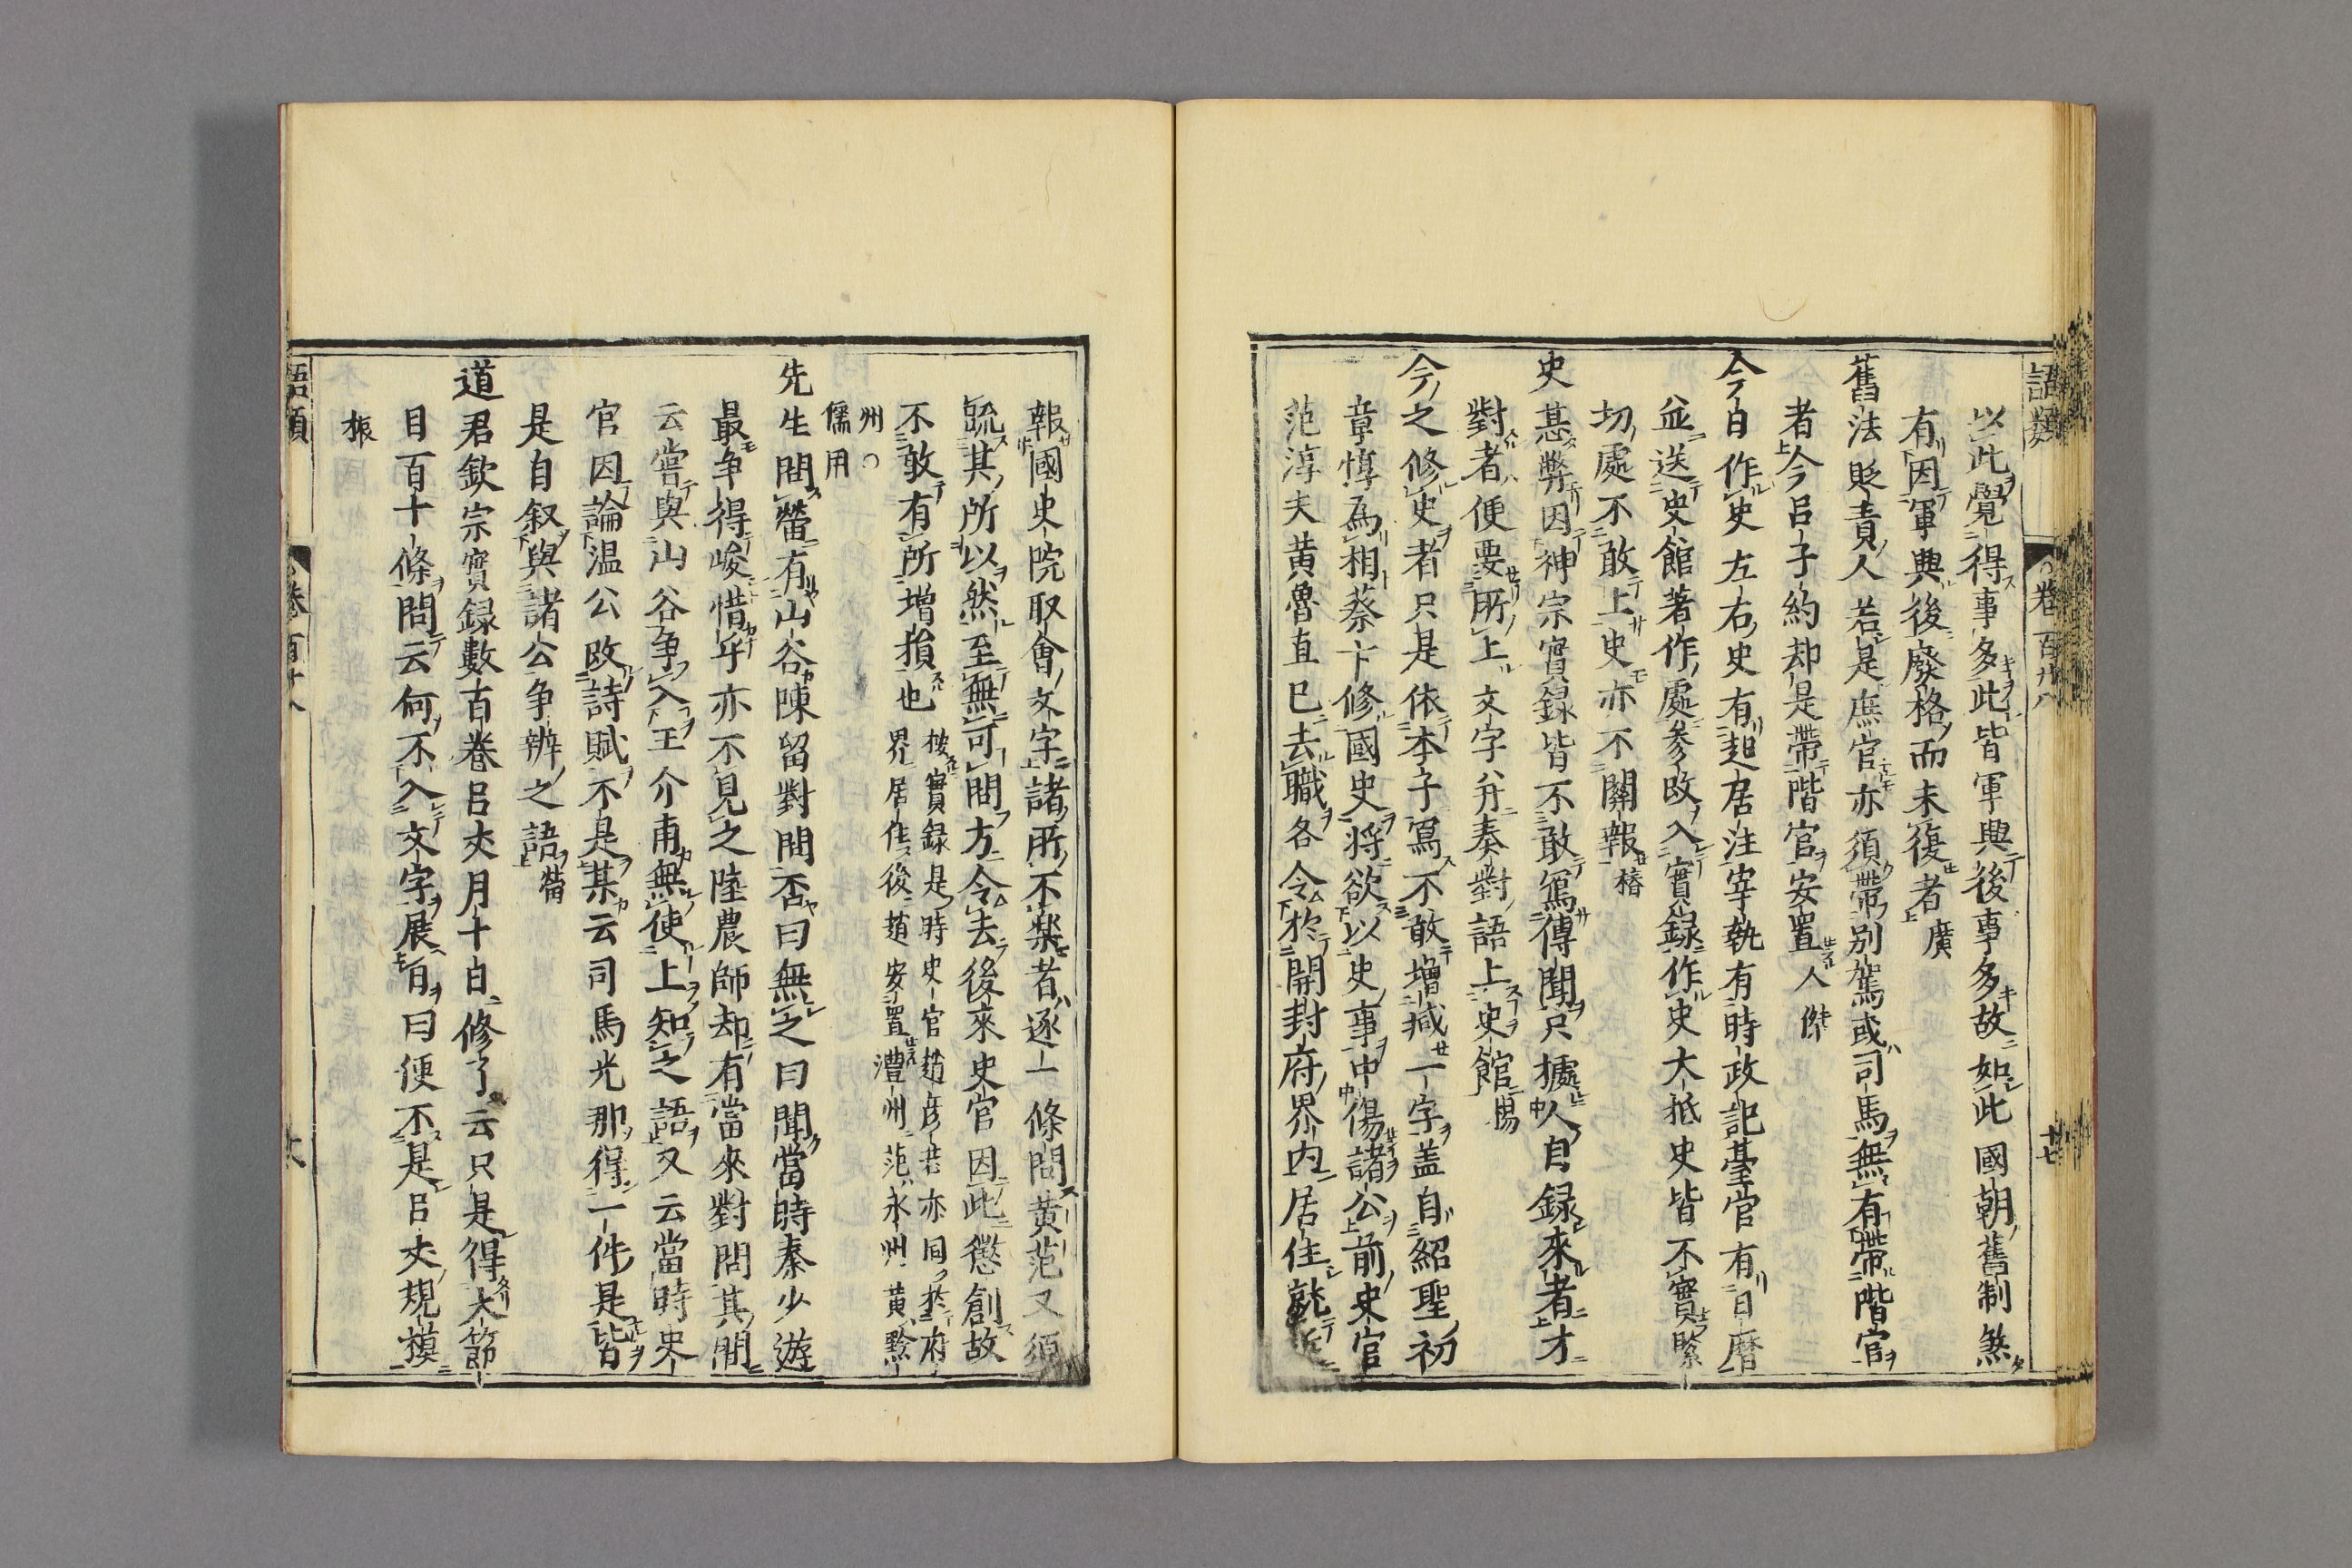 語類 卷百廿八 十七
以此覺得事多此皆軍興後事多故如此國朝舊制煞
有因軍興後廢格而未復者廣
舊法貶責人若是庶官亦須帶別駕或司馬無有帶階官
者今呂子約却是帶階官安置人傑
今日作史左右史有起居注宰執有時政記臺官有日曆
並送史館著作處參改入實録作史大抵史皆不實緊
切處不敢上史亦不關報椿
史甚弊因神宗實録皆不敢寫傳聞只據人自録來者才
對者便要所上文字并奏對語上史館昜
今之修史者只是依本子寫不敢增減一字盖自紹聖初
章惇為相蔡卞修國史将欲以史事中傷諸公前史官
范淳夫黄魯直已去職各令於開封府界内居住就近
報國史院取會文字諸所不樂者逐一條問黄范又須
䟽其所以然至無可問方令去後來史官因此懲創故
不敢有所增損也
按實録是時史官趙彦若亦同於府
界居住後趙安置澧州范永州黄黔
州○
儒用
先生問㽦有山谷陳留對問否曰無之曰聞當時秦少遊
最争得峻惜乎亦不見之陸農師却有當來對問其間
云嘗與山谷争入王介甫無使上知之語又云當時史
官因論温公改詩賦不是某云司馬光那得一件是皆
是自叙與諸公争辨之語㽦
道君欽宗實録數百卷呂丈月十日修了云只是得大節
目百十條問云何不入文字展日曰便不是呂丈規摸
振
語類 卷百廿八